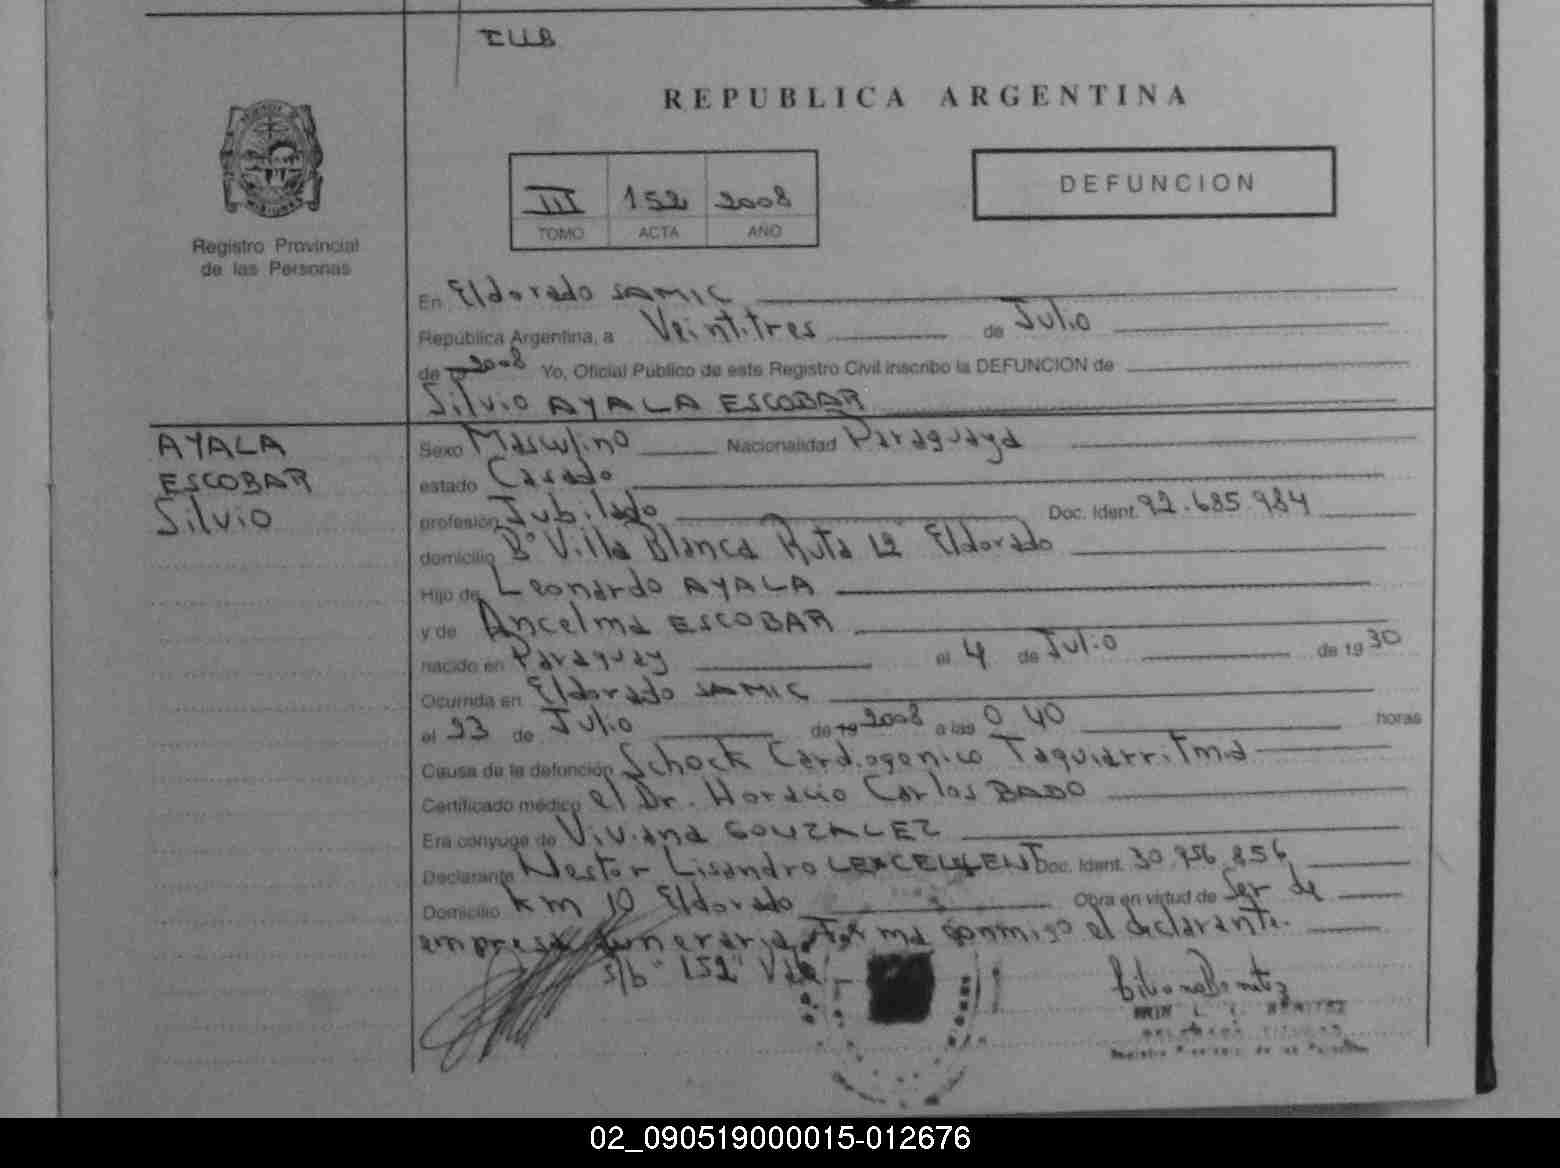 REPUBLICA ARGENTINA
III 152 2008
TOMO ACTA AÑO
DEFUNCION
Registro Provincial
de las Personas
En Eldorado SAMIC
República Argentina, a Veintitres de Julio
de 2008 Yo, Oficial Público de este Registro Civil inscribo la DEFUNCION de
Silvio AYALA ESCOBAR
AYALA
ESCOBAR
Silvio
Sexo Masculino Nacionalidad Paraguaya
estado Casado
profesión Jubilado Doc. Ident. 92.685.984
domicilio B° Villa Blanca Ruta 12 Eldorado
Hijo de Leonardo AYALA
y de Ancelma ESCOBAR
nacido en Paraguay el 4 de Julio de 1930
Ocurrida en Eldorado SAMIC
el 23 de Julio de 19 2008 a las 0 40 horas
Causa de la defunción Schock Cardiogenico Taquiarritmia
Certificado médico el Dr. Horacio Carlos BADO
Era cónyuge de Viviana GONZALEZ
Declarante Nestor Lisandro Doc. Ident. 30.756.856
Domicilio km 10 Eldorado Obra en virtud de Ser de
empresa funeraria, firma conmigo el declarante.
s/b "152" Vale
02_090519000015-012676